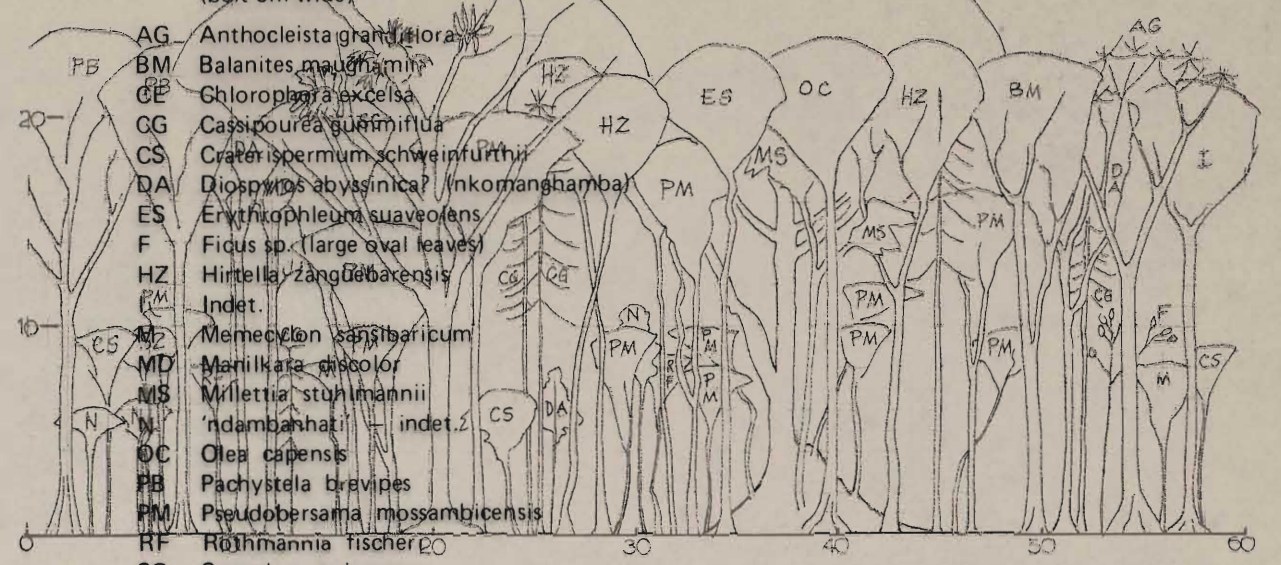 AG Anthocleista grandiflora
BM Balanites maughamii
CE Chlorophora excelsa
CG Cassipourea gummiflua
CS Craterispermum schweinfurthii
DA Diospyros abyssinica? (nkomanghamba)
ES Erythrophleum suaveolens
F Ficus sp. (large oval leaves)
HZ Hirtella zanguebarensis
I Indet.
M Memecylon sansibaricum
MD Manilkara discolor
MS Millettia stuhlmannii
N 'ndambanhati' – indet.
OC Olea capensis
PB Pachystela brevipes
PM Pseudobersama mossambicensis
RF Rothmannia fischeri
AG
PB HZ ES OC HZ BM
20 HZ
MS I
PM DA
PM
MS
CG CG
PM CG
N F
10 PM PM PM PM
CS RF M CS
PM
N CS DA
0 20 30 40 50 60